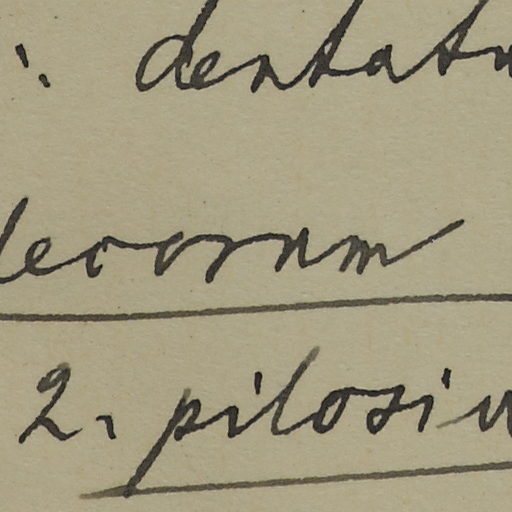 : dentatu
decorum
2. pilosiu